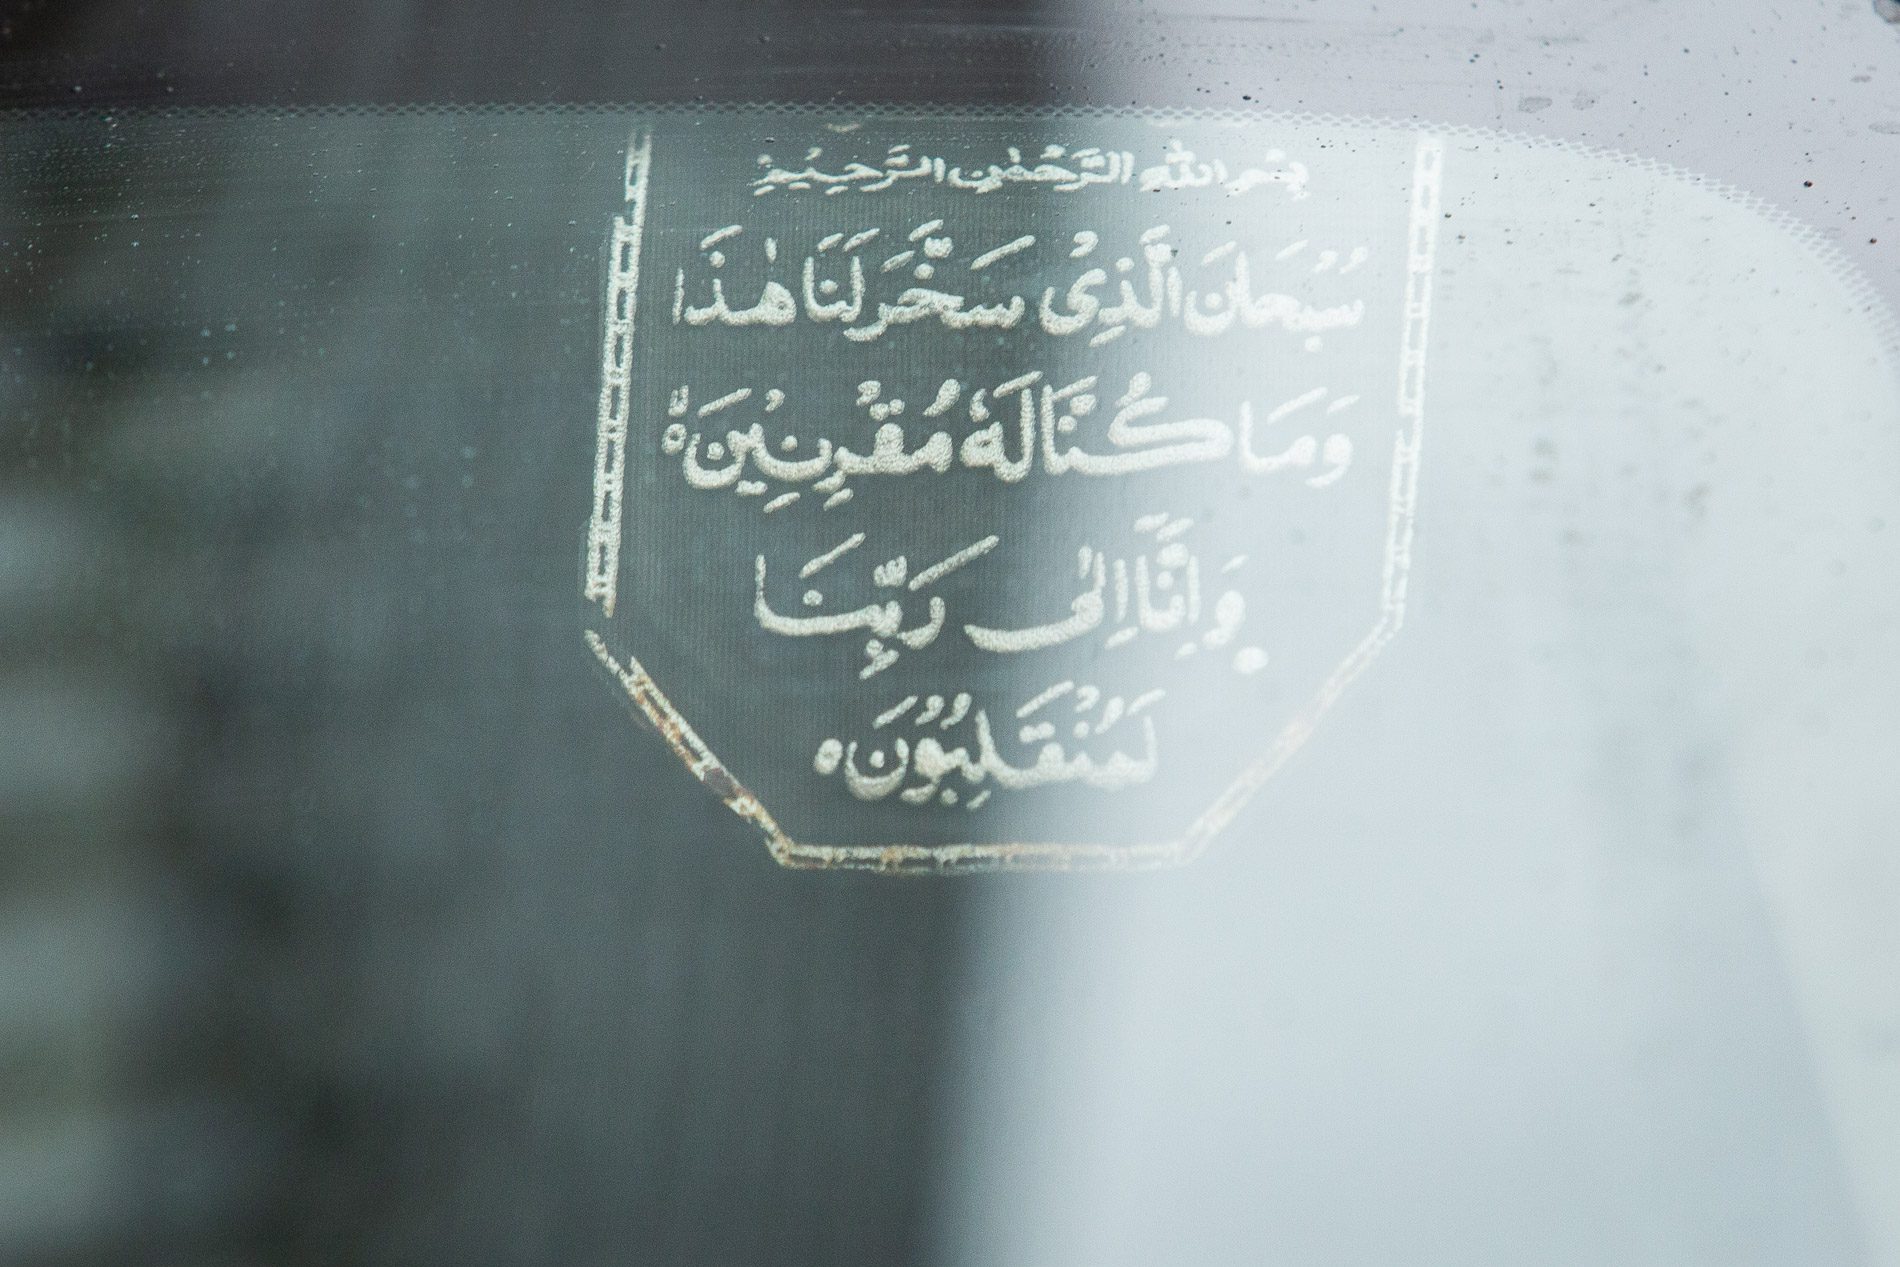 بِسْمِ اللهِ الرَّحْمٰنِ الرَّحِيْمِ
سُبْحَانَ الَّذِىْ سَخَّرَ لَنَا هٰذَا
وَمَا كُنَّا لَهٗ مُقْرِنِيْنَ ۙ
وَ اِنَّاۤ اِلٰى رَبِّنَا
لَمُنْقَلِبُوْنَ ه